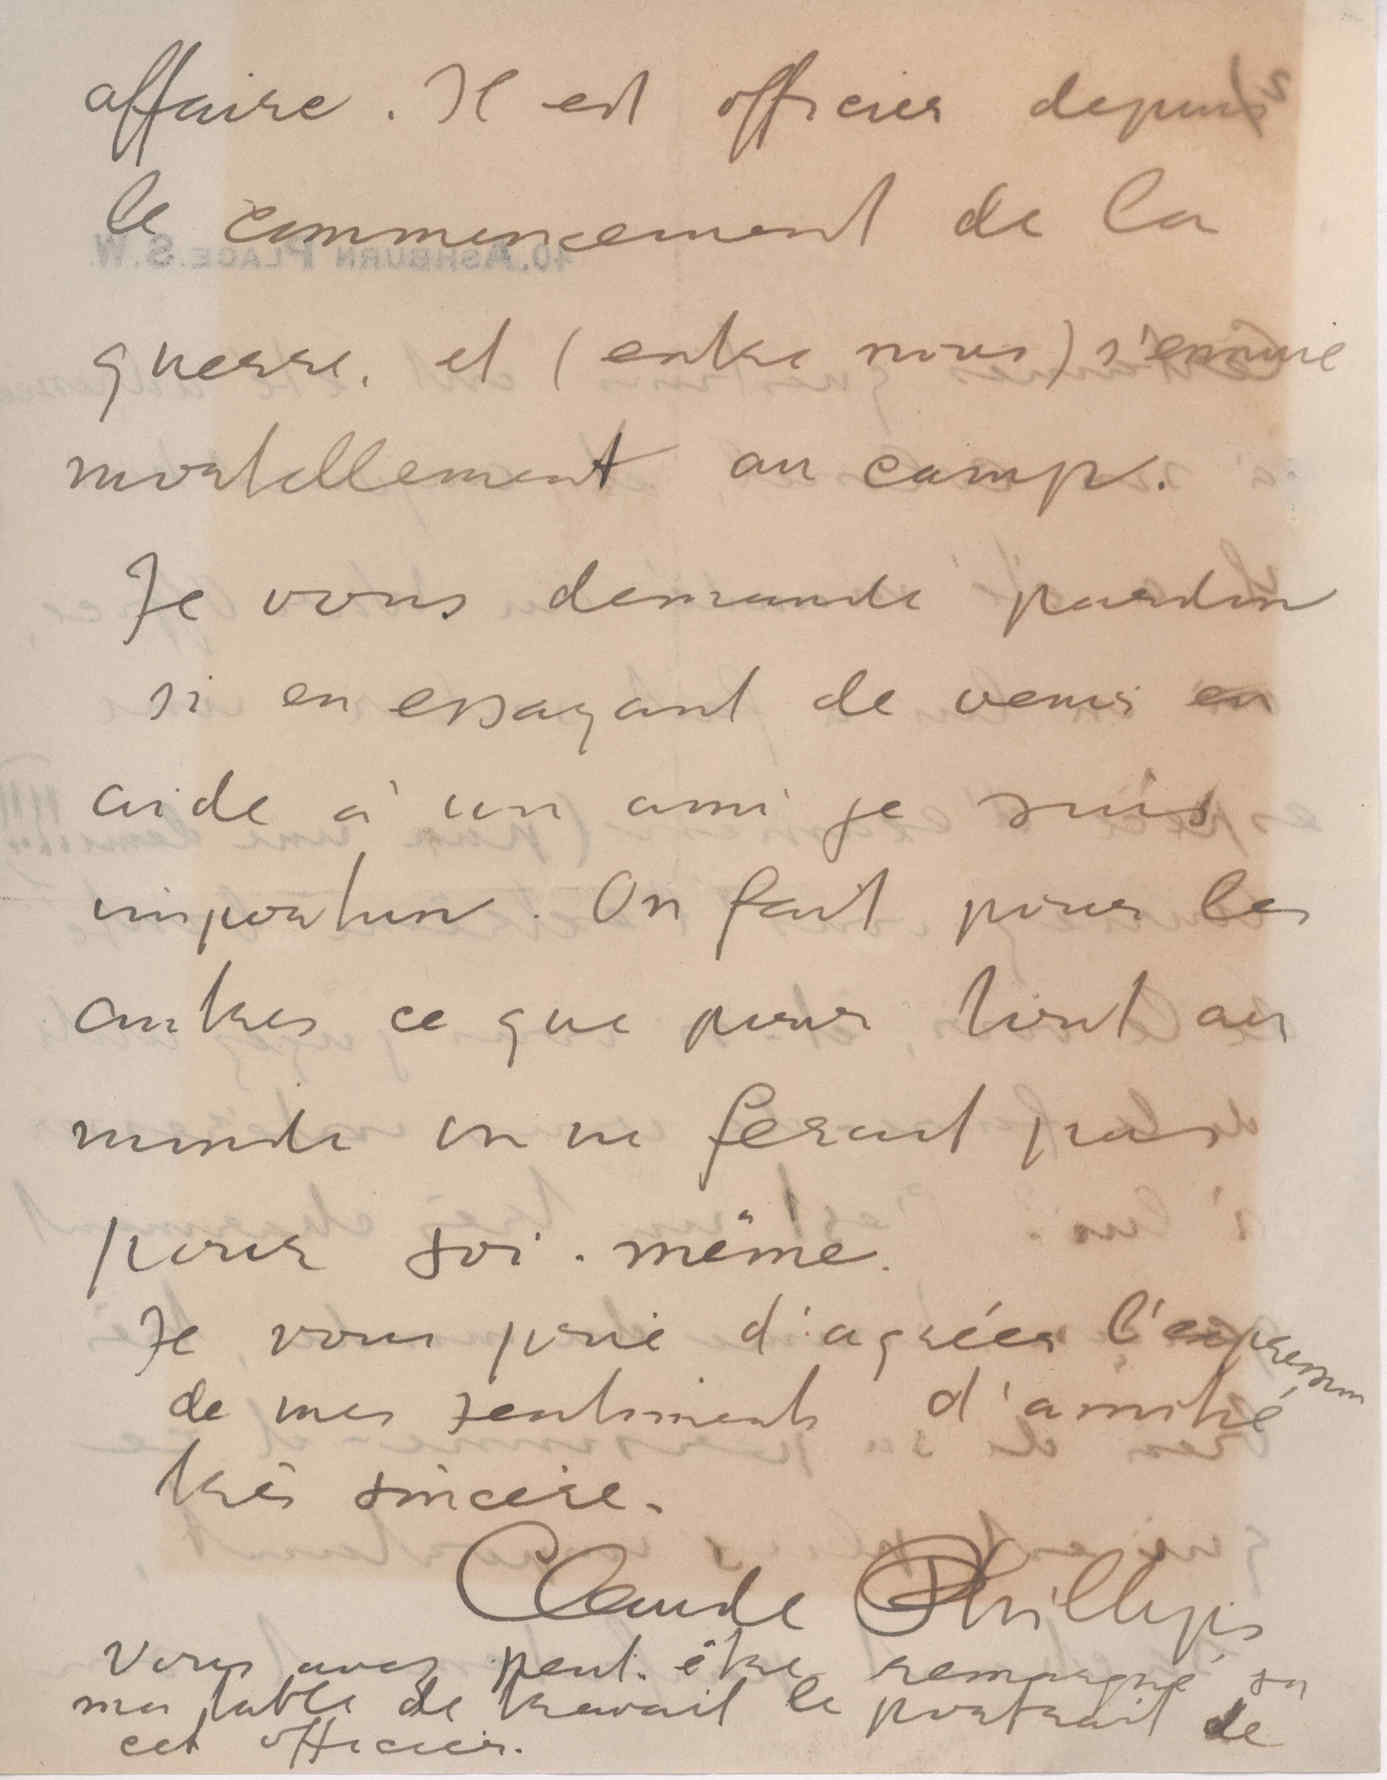 affaire. Il est officier depuis
le commencement de la
guerre, et (entre nous) s'ennuie
mortellement au camp.
Je vous demande pardon
si en essayant de venir en
aide à un ami je suis
importun. On fait pour les
autres ce que pour tout au
monde on ne ferait pas
pour soi-même.
Je vous prie d'agréer l'expression
de mes sentiments d'amitié
très sincère.
Claude Phillips
Vous avez peut-être remarqué sur
ma table de travail le portrait de
cet officier.
40. ASHBURN PLACE. S.W.